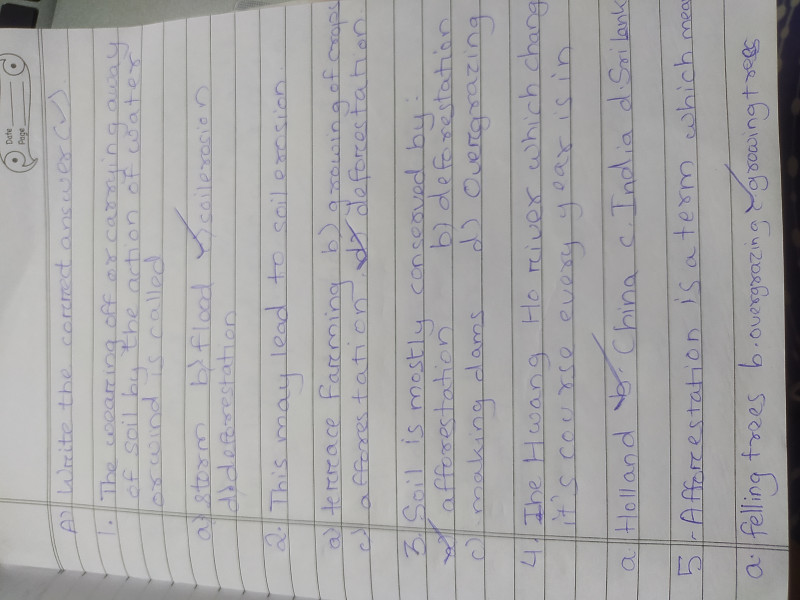 Date
Page
A) Write the correct answer (✓)
1. The wearing off or carrying away
of soil by the action of water
or wind is called
a) storm b) flood c) soil erosion
d) deforestation
2. This may lead to soil erosion.
a) terrace farming b) growing of crops
c) afforestation d) deforestation
3. Soil is mostly conserved by:
a) afforestation b) deforestation
c) making dams d) Overgrazing
4. The Hwang Ho river which chang
it's course every year is in
a. Holland b. China c. India d. Srilank
5. Afforestation is a term which mea
a. felling trees b. overgrazing c. growing trees